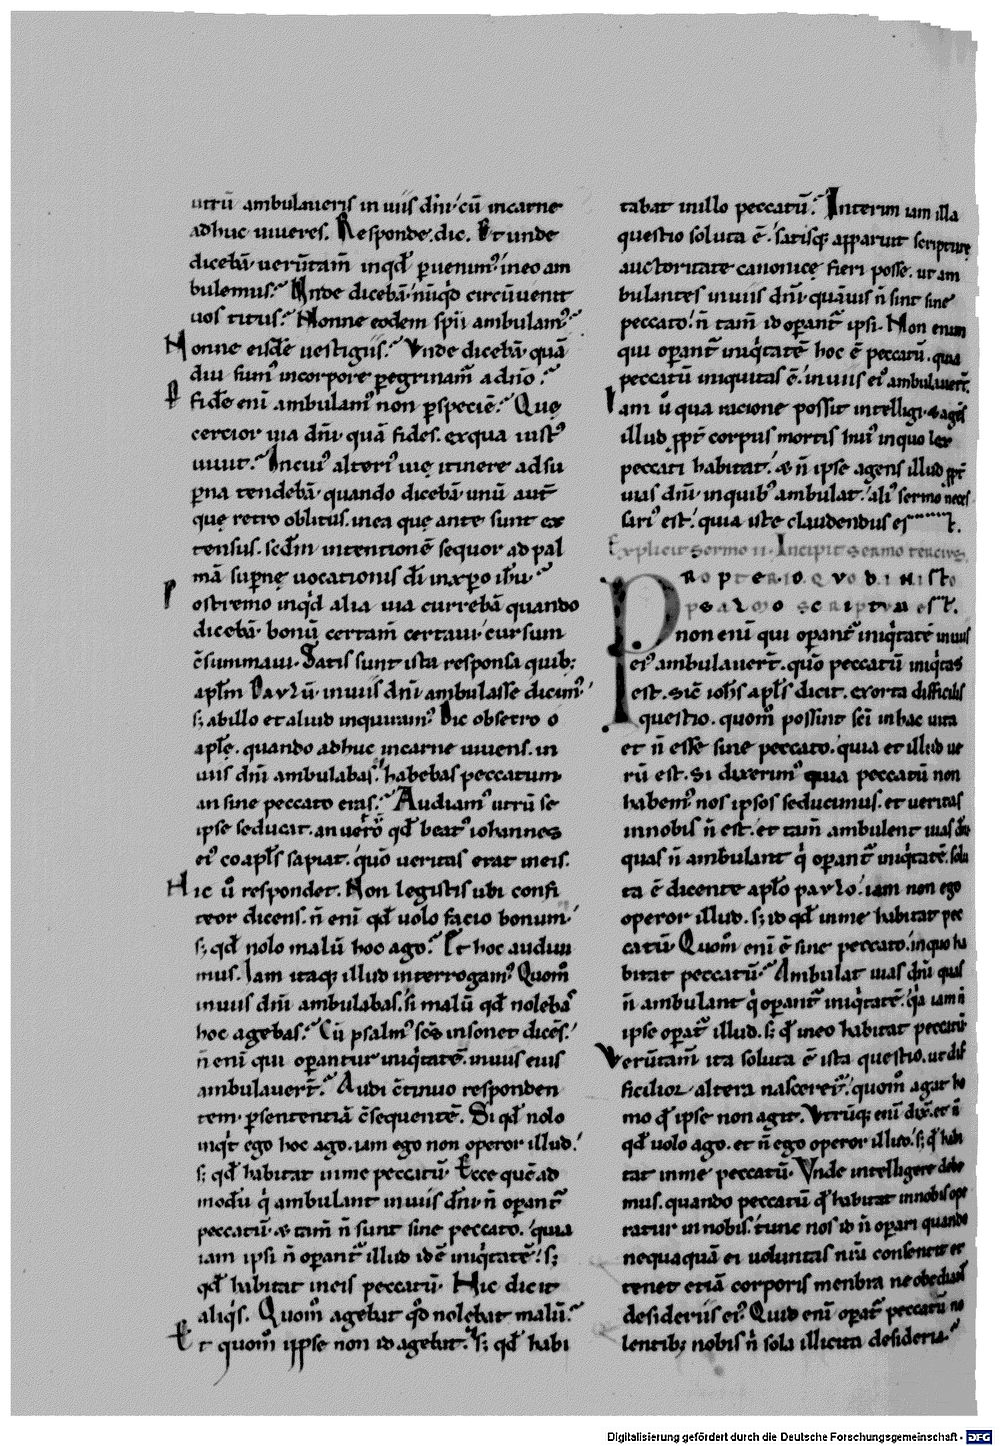 utrū ambulaueris in uiis dn̄i· cū incarne
adhuc uiueres. Responde. dic. Et unde
dicebā· uerūtam̄ inqđ ꝑuenim᷒ ineo am
bulemus. Vnde dicebā· nūqđ circūuenit
uos titus. Nonne eodem spū ambulam᷒.
Nonne eisdē uestigiis. Vnde dicebā· quā
diu sum᷒ incorpore ꝑegrinam̄ a dn̄o.
P fidē enī ambulam᷒ non ꝑspeciē. Quę
cercior uia dn̄i· quā fides. exqua iust᷒
uiuit. Incui᷒ alteri᷒ uię itinere adsu
ꝑna tendebā· quando dicebā· unū aut̄
quę retro oblitus. inea quę ante sunt ex
tensus. scd̄m intentionē sequor ad pal
mā supernę uocationis dī inxp̄o ih̄u.
Postremo inqđ alia uia currebā quando
dicebā· bonū certam̄ certaui· cursum
c̄summaui. Satis sunt ista responsa quib;
apl̄m Paulū· inuiis dn̄i ambulasse dicim᷒.
s; abillo et aliud inquiram᷒. Dic obsecro o
aplę. quando adhuc incarne uiuens. in
uiis dn̄i ambulabas. habebas peccatum
an sine peccato eras. Audiam᷒ utrū se
ipse seducat. an uero qđ beat᷒ iohannes
ei᷒ coapl̄s sapiat. quō ueritas erat ineis.
Hic ū respondet. Non legistis ubi confi
teor dicens. n̄ enī qđ uolo facio bonum·
s; qđ nolo malū hoc ago. Et hoc audiui
mus. Iam itaq; illud interrogam᷒ Quom̄
inuiis dn̄i ambulabas. si malū qđ nolebas
hoc agebas. Cū psalm᷒ scs̄ insonet dicēs.
n̄ enī qui oꝑantur iniq̇tatē. inuiis eius
ambulauerт̄. Audi c̄tinuo responden
tem· ꝑsententiā c̄sequentē. Si qđ nolo
inqt ego hoc ago. iam ego non operor illud.
s; qđ habitat inme peccatū. Ecce quēad
modū q̇ ambulant inuiis dn̄i· n̄ oꝑant̄
peccatū· & tam̄ n̄ sunt sine peccato. quia
iam ipsi n̄ oꝑant̄ illud id ē iniq̇tatē. s;
qđ habitat ineis peccatū. Hic dicit
aliq̇s. Quom̄ agebat qđ nolebat malū.
Et quom̄ ipse non id agebat. s; qđ habi
tabat inillo peccatū. Interim iam illa
questio soluta ē. satisq; apparuit scripturę
auctoritate canonicę fieri posse. ut am
bulantes inuiis dn̄i· quāuis n̄ sint sine
peccato. n̄ tam̄ id oꝑant̄ ipsi. Non enim
qui oꝑant̄ iniq̇tatē hoc ē peccatū. quia
peccatū iniquitas ē. inuiis ei᷒ ambulauert̄.
Iam ū qua racione possit intelligi· & agi
illud ꝓpt̄ corpus mortis hui᷒ inquo lex
peccati habitat. & n̄ ipse agens illud ꝓpt̄
uias dn̄i· inquib᷒ ambulat. ali᷒ sermo neces
sari᷒ est. quia iste claudendus est.
Explicit sermo ii. Incipit sermo tercius.
PROPTER IO. QVOD IN ISTO
psalmo scriptum est.
non enī qui oꝑant̄ iniq̇tatē inuiis
ei᷒ ambulauert̄. quō peccatū iniq̇tas
est. sic̄ ioh̄s apl̄s dicit. exorta difficilis
questio. quom̄ possint sc̄i inhac uita
et n̄ esse sine peccato. quia et illud ue
rū est. Si dixerim᷒ quia peccatū non
habem᷒ nos ipsos seducimus. et ueritas
innobis n̄ est. et tam̄ ambulent uias dn̄i
quas n̄ ambulant q̇ oꝑant̄ iniq̇tatē. solu
ta ē dicente apl̄o paulo. iam non ego
operor illud. s; id qđ inme habitat pec
catū. Quom̄ enī ē sine peccato. inquo ha
bitat peccatū. Ambulat uias dn̄i quas
n̄ ambulant q̇ oꝑant̄ iniq̇tatē. q̇a iam n̄
ipse oꝑat̄ illud. s; qđ ineo habitat peccatū.
Verūtam̄ ita soluta ē ista questio. ut dif
ficilior altera nasceret᷒. quom̄ agat ho
mo qđ ipse non agit. Vtrūq; enī dix̄. et n̄
qđ uolo ago. et n̄ ego operor illud. s; qđ habi
tat inme peccatū. Vnde intelligere debe
mus. quando peccatū qđ habitat innobis ope
ratur innobis. tunc nos id n̄ oꝑari quando
nequaquā ei uoluntas n̄ra consentit et
tenet etiā corporis menbra ne obediant
desideriis ei᷒. Quid enī oꝑat̄ peccatū no
lentib; nobis n̄ sola illicita desideria.